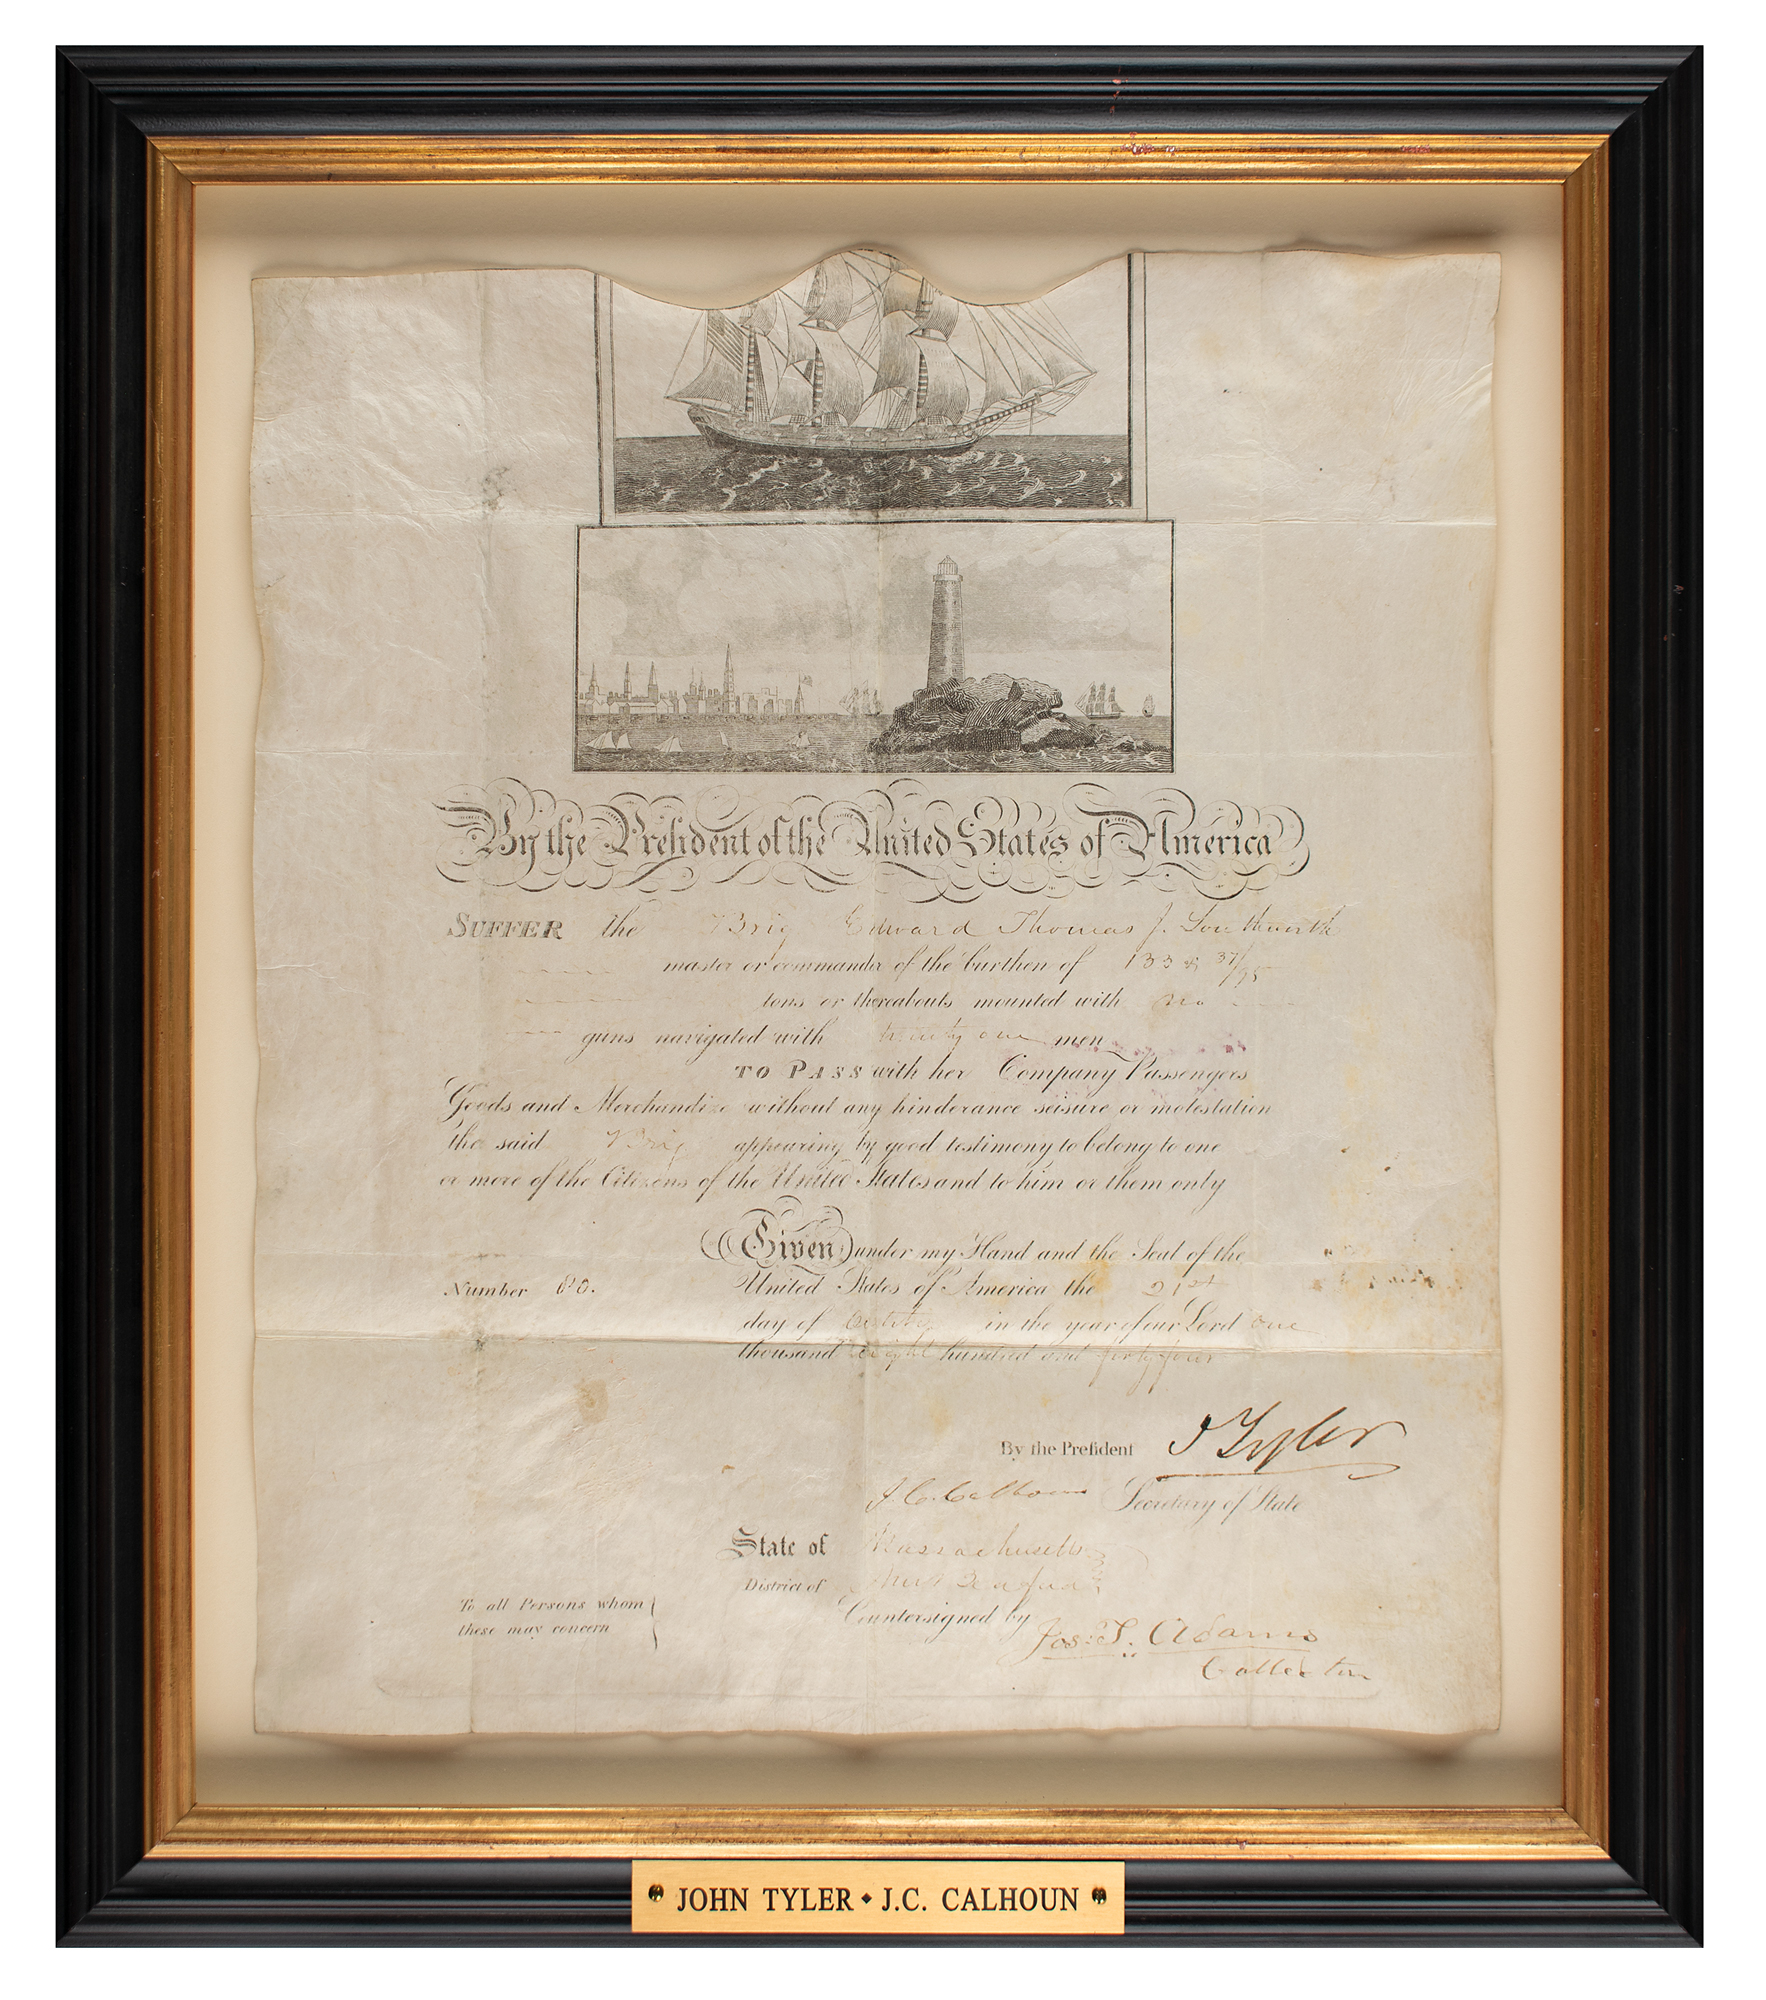 By the President of the United States of America
SUFFER the Brig Edward Thomas J. Southworth
master or commander of the burthen of 133 & 37/95
tons or thereabouts mounted with no
guns navigated with men
TO PASS with her Company Passengers
Goods and Merchandize without any hinderance seisure or molestation
the said Brig appearing by good testimony to belong to one
or more of the Citizens of the United States and to him or them only
Given under my Hand and the Seal of the
Number 80. United States of America the 21st
day of in the year of our Lord one
thousand eight hundred and forty four
By the President J Tyler
J. C. Calhoun Secretary of State
State of Massachusetts
District of
To all Persons whom
these may concern
Countersigned by
Jos: T. Adams
Collector
JOHN TYLER • J.C. CALHOUN